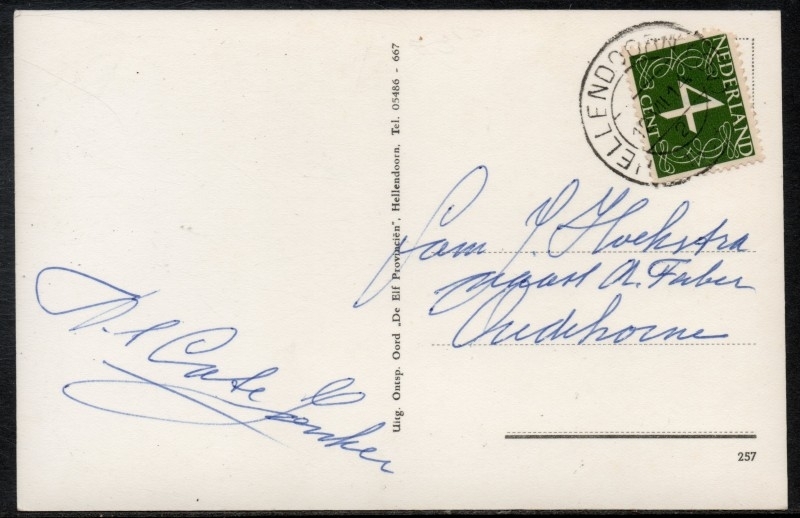 HELLENDOORN
NEDERLAND
4
CENT
Fam. J. Hoekstra
naast A. Faber
Oudehorne
Uitg. Ontsp. Oord „De Elf Provinciën", Hellendoorn. Tel. 05486 - 667
Cate
Jonker
257